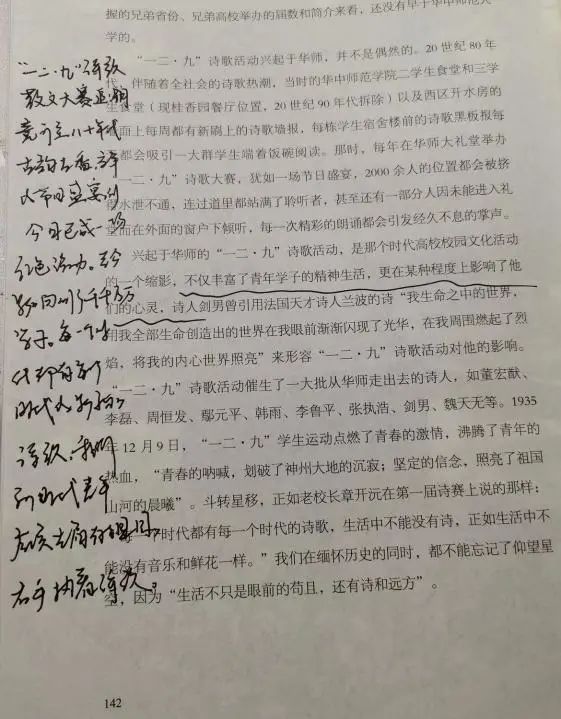 握的兄弟省份、兄弟高校举办的届数和简介来看，还没有早于华中师范大
学的。
“一二·九”诗歌活动兴起于华师，并不是偶然的。20 世纪 80 年
代，伴随着全社会的诗歌热潮，当时的华中师范学院二学生食堂和三学
生食堂（现桂香园餐厅位置，20 世纪 90 年代拆除）以及西区开水房的
面上每周都有新刷上的诗歌墙报，每栋学生宿舍楼前的诗歌黑板报每
都会吸引一大群学生端着饭碗阅读。那时，每年在华师大礼堂举办
一二·九”诗歌大赛，犹如一场节日盛宴，2000 余人的位置都会被挤
水泄不通，连过道里都站满了聆听者，甚至还有一部分人因未能进入礼
堂而在外面的窗户下倾听，每一次精彩的朗诵都会引发经久不息的掌声。
兴起于华师的“一二·九”诗歌活动，是那个时代高校校园文化活动
的一个缩影，不仅丰富了青年学子的精神生活，更在某种程度上影响了他
们的心灵，诗人剑男曾引用法国天才诗人兰波的诗“我生命之中的世界，
用我全部生命创造出的世界在我眼前渐渐闪现了光华，在我周围燃起了烈
焰，将我的内心世界照亮”来形容“一二·九”诗歌活动对他的影响。
“一二·九”诗歌活动催生了一大批从华师走出去的诗人，如董宏猷、
李磊、周恒发、鄢元平、韩雨、李鲁平、张执浩、剑男、魏天无等。1935
年 12 月 9 日，“一二·九”学生运动点燃了青春的激情，沸腾了青年的
热血，“青春的呐喊，划破了神州大地的沉寂；坚定的信念，照亮了祖国
山河的晨曦”。斗转星移，正如老校长章开沅在第一届诗赛上说的那样：
时代都有每一个时代的诗歌，生活中不能没有诗，正如生活中不
能没有音乐和鲜花一样。”我们在缅怀历史的同时，都不能忘记了仰望星
空，因为“生活不只是眼前的苟且，还有诗和远方”。
142
“一二·九”诗歌
散文大赛
八十年代
节日盛宴
今日已成一场
红色
千千万万
学子。每一个时
代都有每个
时代
诗歌，我们
新时代青年
左手
右手 诗歌。